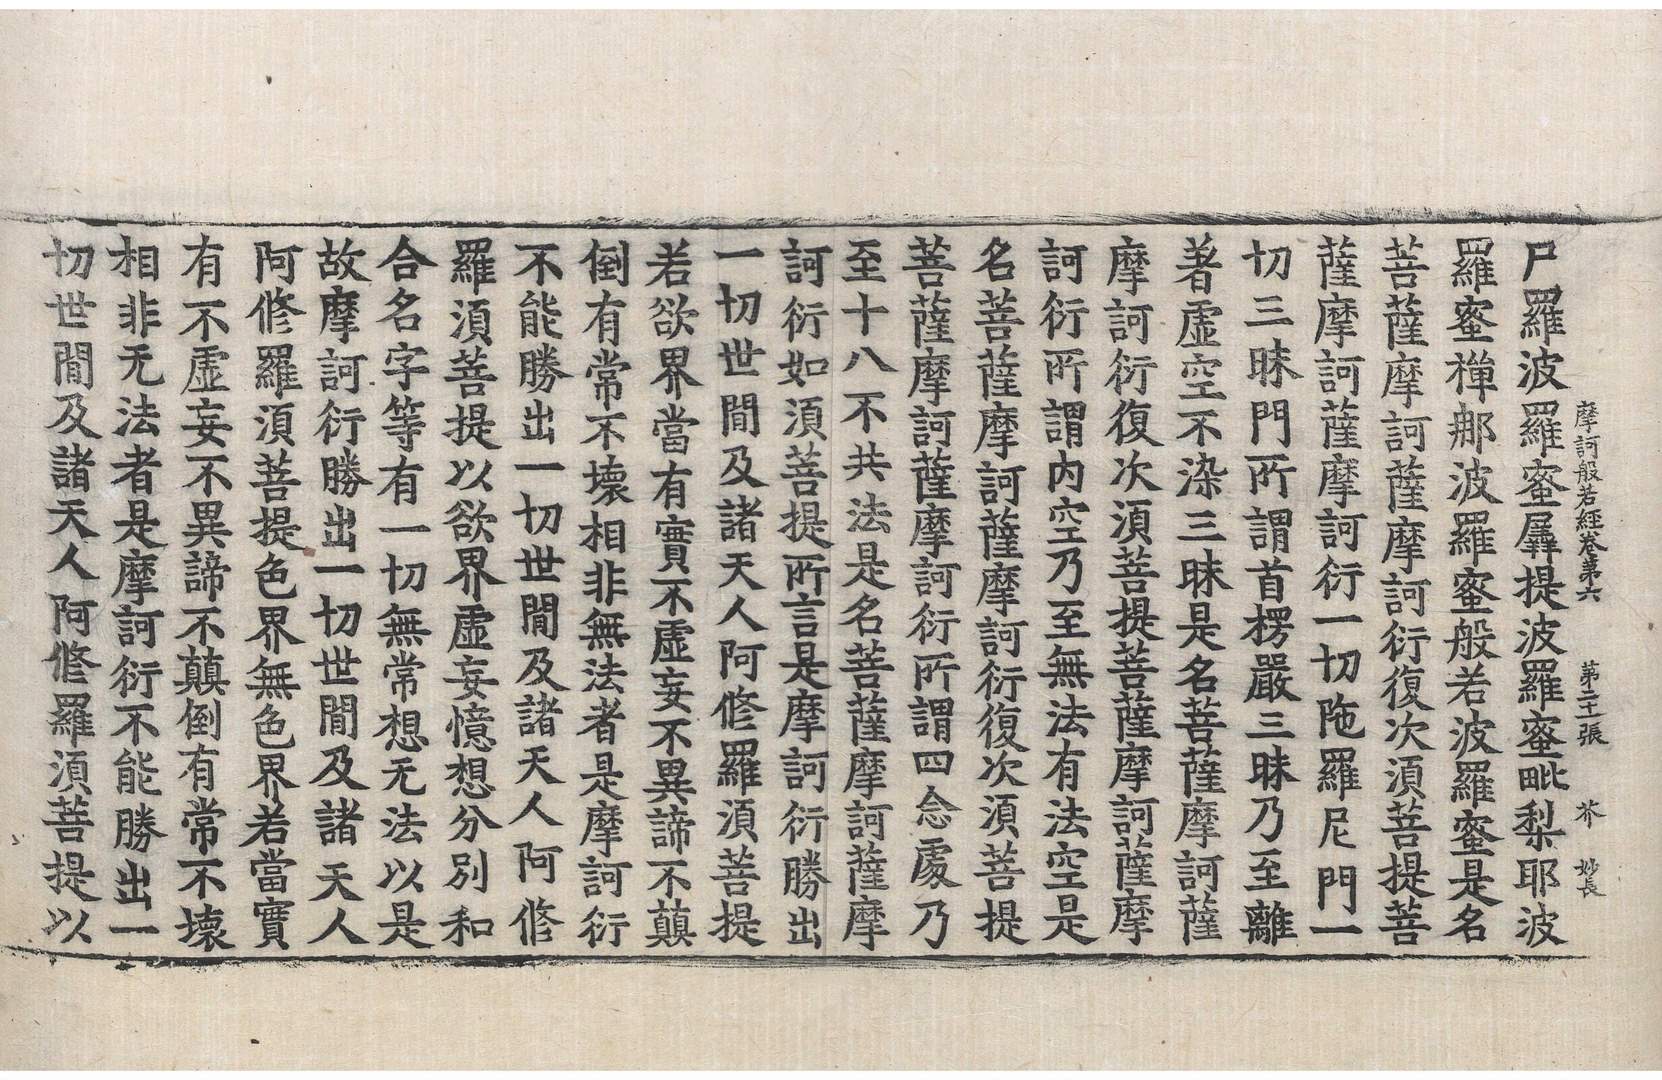 摩訶般若經卷第六 芥 妙長
尸羅波羅蜜羼提波羅蜜毗梨耶波
羅蜜禪那波羅蜜般若波羅蜜是名
菩薩摩訶薩摩訶衍復次湏菩提菩
薩摩訶薩摩訶衍一切陁羅尼門一
切三昧門所謂首楞嚴三昧乃至離
著虛空不染三昧是名菩薩摩訶薩
摩訶衍復次湏菩提菩薩摩訶薩摩
訶衍所謂內空乃至無法有法空是
名菩薩摩訶薩摩訶衍復次湏菩提
菩薩摩訶薩摩訶衍所謂四念處乃
至十八不共法是名菩薩摩訶薩摩
訶衍如湏菩提所言是摩訶衍勝出
一切世間及諸天人阿修羅湏菩提
若欲界當有實不虛妄不異諦不顛
倒有常不壞相非無法者是摩訶衍
不能勝出一切世間及諸天人阿修
羅湏菩提以欲界虛妄憶想分別和
合名字等有一切無常想无法以是
故摩訶衍勝出一切世間及諸天人
阿修羅湏菩提色界無色界若當實
有不虛妄不異諦不顛倒有常不壞
相非无法者是摩訶衍不能勝出一
切世間及諸天人阿修羅湏菩提以